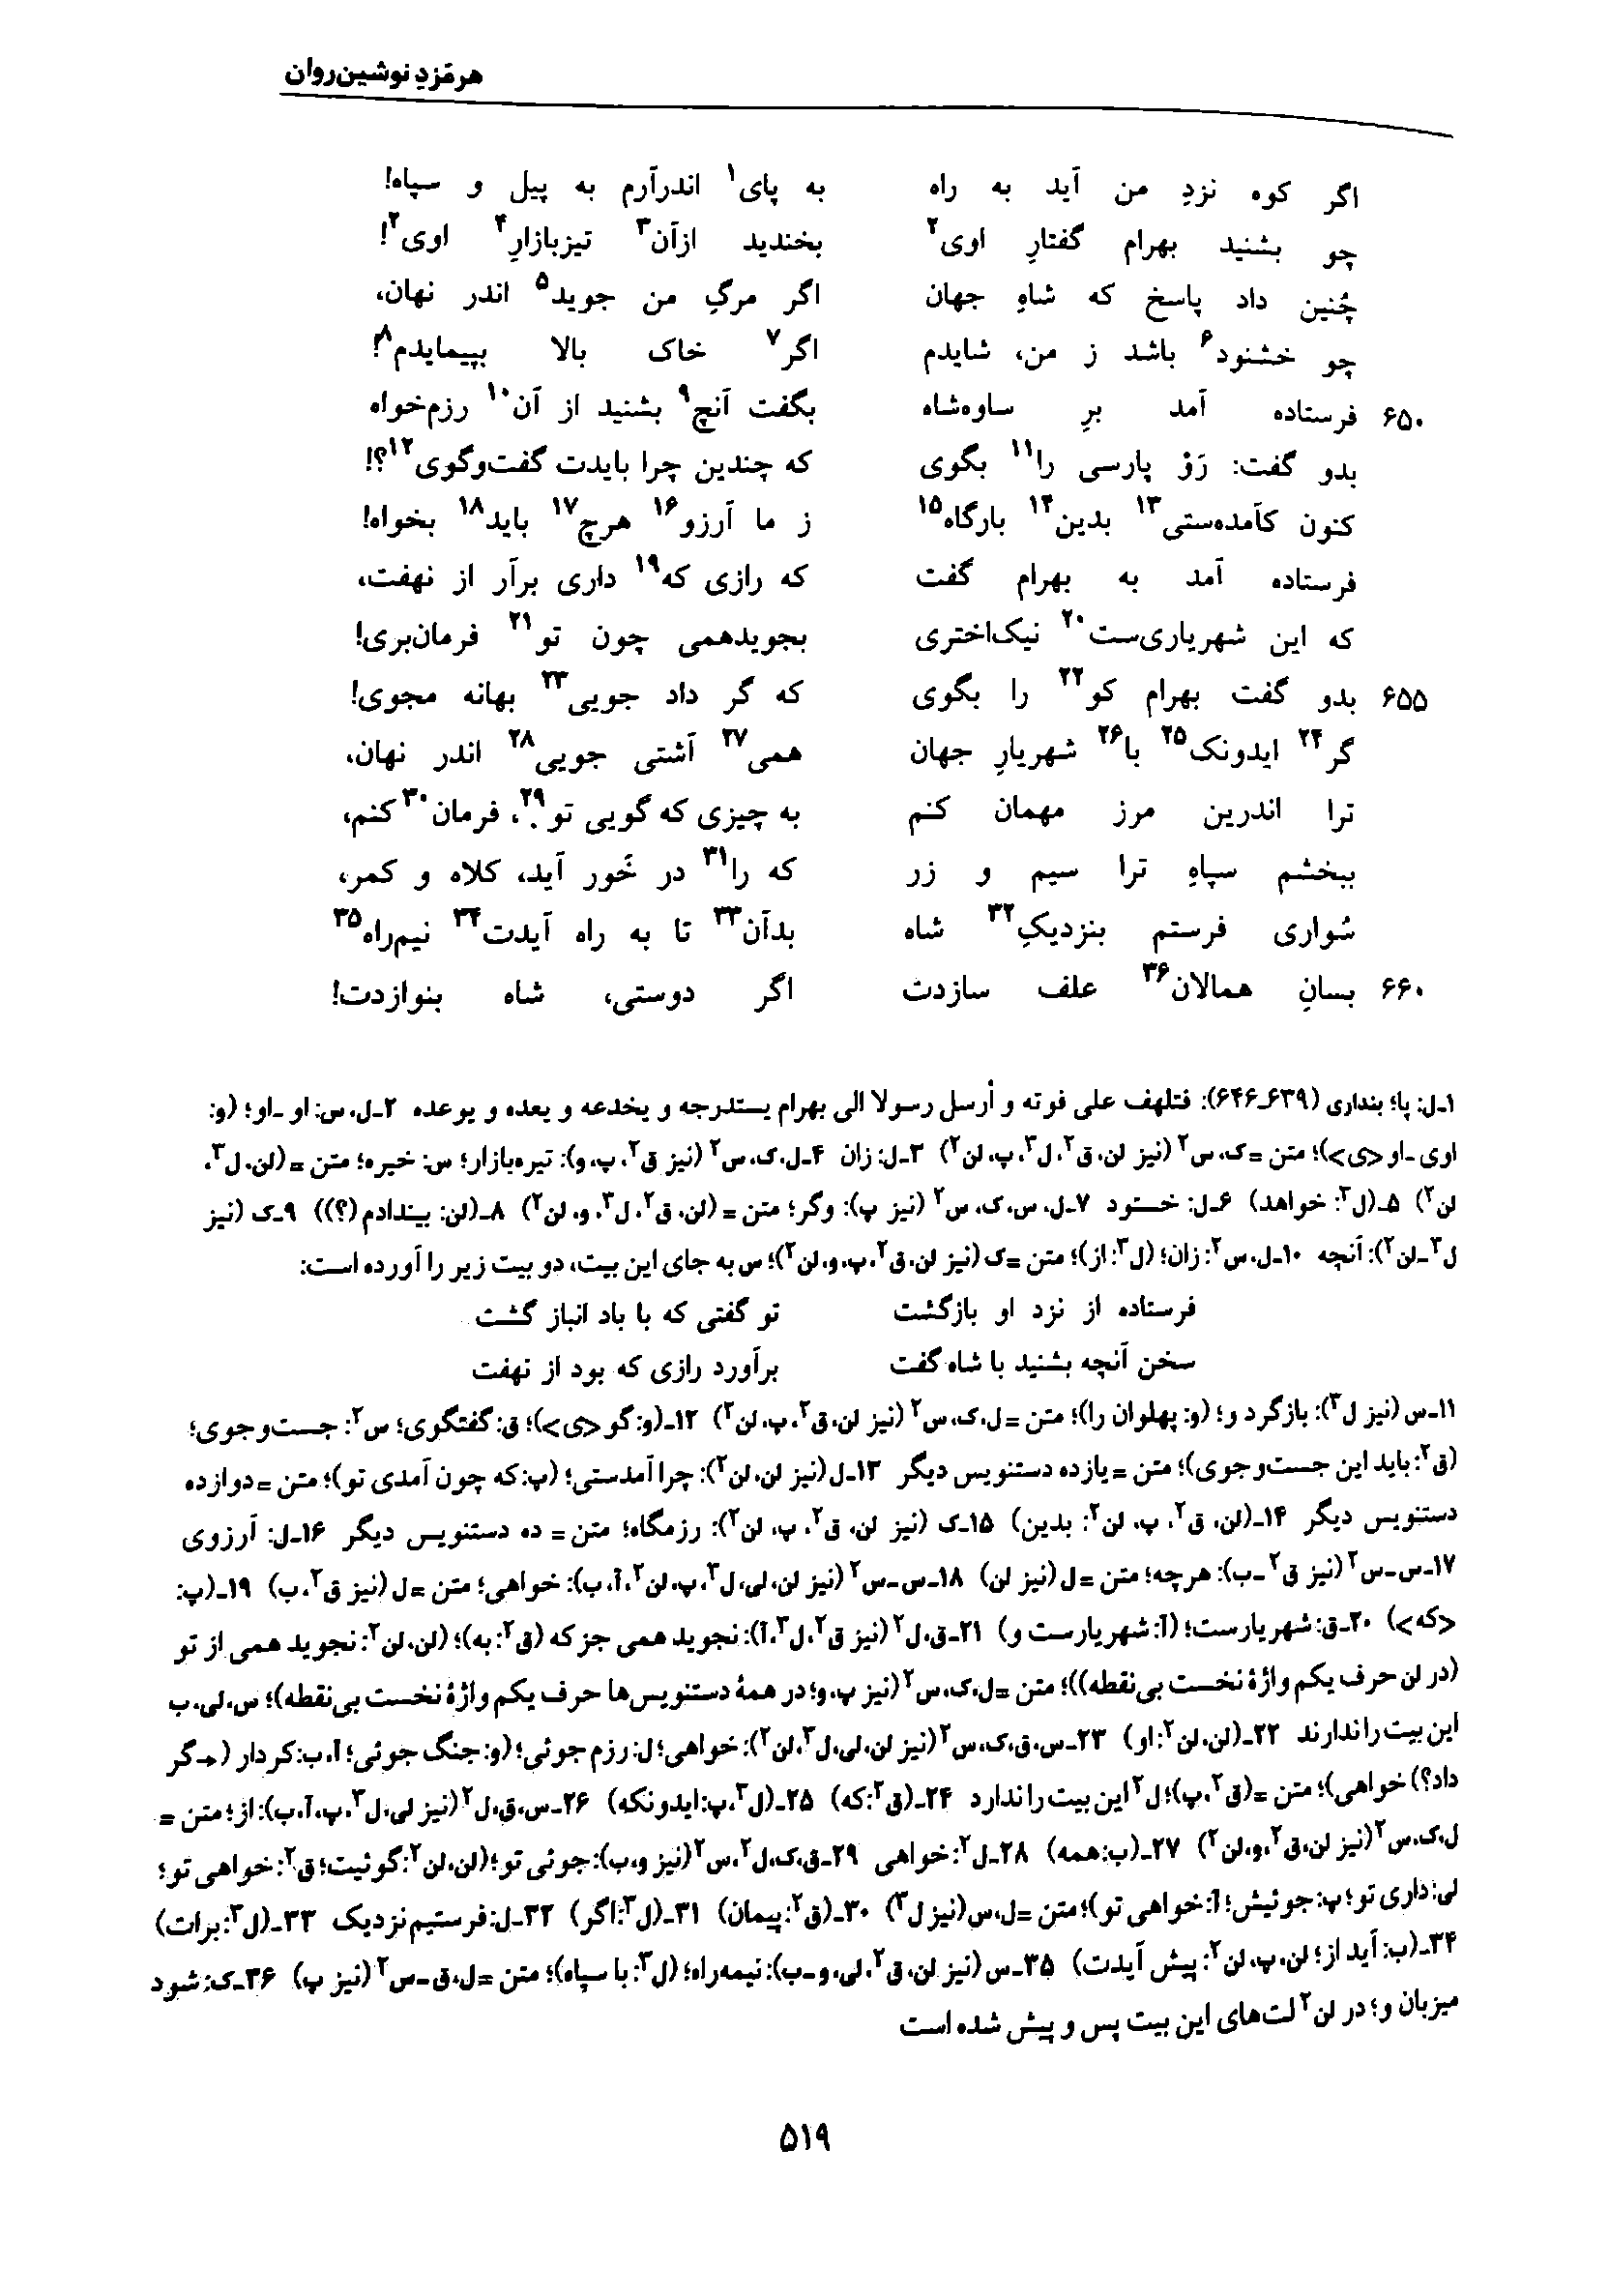 هرمَزدِ نوشین‌روان
اگر کوه نزدِ من آید به راه به پای۱ اندرآرم به پیل و سپاه!
چو بشنید بهرام گفتارِ اوی۲ بخندید ازآن۳ تیزبازارِ۴ اوی۲!
چُنین داد پاسخ که شاهِ جهان اگر مرگِ من جوید۵ اندر نهان،
چو خشنود۶ باشد ز من، شایدم اگر۷ خاک بالا بپیمایدم۸!
۶۵۰ فرستاده آمد برِ ساوه‌شاه بگفت آنچ۹ بشنید از آن۱۰ رزم‌خواه
بدو گفت: رَوْ پارسی را۱۱ بگوی که چندین چرا بایدت گفت‌وگوی۱۲؟!
کنون کآمده‌ستی۱۳ بدین۱۴ بارگاه۱۵ ز ما آرزو۱۶ هرچ۱۷ باید۱۸ بخواه!
فرستاده آمد به بهرام گفت که رازی که۱۹ داری برآر از نهفت،
که این شهریاری‌ست۲۰ نیک‌اختری بجویدهمی چون تو۲۱ فرمان‌بری!
۶۵۵ بدو گفت بهرام کو۲۲ را بگوی که گر داد جویی۲۳ بهانه مجوی!
گر۲۴ ایدونک۲۵ با۲۶ شهریارِ جهان همی۲۷ آشتی جویی۲۸ اندر نهان،
ترا اندرین مرز مهمان کنم به چیزی که گویی تو۲۹، فرمان۳۰ کنم،
ببخشم سپاهِ ترا سیم و زر که را۳۱ در خَور آید، کلاه و کمر،
سُواری فرستم بنزدیکِ۳۲ شاه بدآن۳۳ تا به راه آیدت۳۴ نیم‌راه۳۵
۶۶۰ بسانِ همالان۳۶ علف سازدت اگر دوستی، شاه بنوازدت!
۱ـ‌ل: پا؛ بنداری (۶۳۹ـ۶۴۶): فتلهف علی فوته و أرسل رسولا الی بهرام یستدرجه و یخدعه و یعده و یوعده ۲ـ‌ل، س: او ـ او؛ (و:
اوی ـ او <ی>)؛ متن = ک، س۲ (نیز لن، ق۲، ل۳، پ، لن۲) ۳ـ‌ل: زان ۴ـ‌ل، ک، س۲ (نیز ق۲، پ، و): تیره‌بازار؛ س: خیره؛ متن = (لن، ل۳،
لن۲) ۵ـ(ل۳: خواهد) ۶ـ‌ل: خستود ۷ـ‌ل، س، ک، س۲ (نیز پ): وگر؛ متن = (لن، ق۲، ل۳، و، لن۲) ۸ـ(لن: بیندادم (؟)) ۹ـ‌ک (نیز
ل۳ـ لن۲): آنچه ۱۰ـ‌ل، س۲: زان؛ (ل۳: از)؛ متن = ک (نیز لن، ق۲، پ، و، لن۲)؛ س به جای این بیت، دو بیت زیر را آورده است:
فرستاده از نزد او بازگشت تو گفتی که با باد انباز گشت
سخن آنچه بشنید با شاه گفت برآورد رازی که بود از نهفت
۱۱ـ‌س (نیز ل۳): بازگرد و؛ (و: پهلوان را)؛ متن = ل، ک، س۲ (نیز لن، ق۲، پ، لن۲) ۱۲ـ(و: گو <ی>)؛ ق: گفتگوی؛ س۲: جست‌وجوی؛
(ق۲: باید این جست‌وجوی)؛ متن = یازده دستنویس دیگر ۱۳ـ‌ل (نیز لن، لن۲): چرا آمدستی؛ (پ: که چون آمدی تو)؛ متن = دوازده
دستنویس دیگر ۱۴ـ(لن، ق۲، پ، لن۲: بدین) ۱۵ـ‌ک (نیز لن، ق۲، پ، لن۲): رزمگاه؛ متن = ده دستنویس دیگر ۱۶ـ‌ل: آرزوی
۱۷ـ‌س ـ س۲ (نیز ق۲ ـ ب): هرچه؛ متن = ل (نیز لن) ۱۸ـ‌س ـ س۲ (نیز لن، لی، ل۳، پ، لن۲، آ، ب): خواهی؛ متن = ل (نیز ق۲، ب) ۱۹ـ(پ:
<که>) ۲۰ـ‌ق: شهریارست؛ (آ: شهریارست و) ۲۱ـ‌ق، ل۲ (نیز ق۲، ل۳، آ): نجوید همی جز که (ق۲: به)؛ (لن، لن۲: نجوید همی از تو
(در لن حرف یکم واژهٔ نخست بی‌نقطه))؛ متن = ل، ک، س۲ (نیز پ، و؛ در همهٔ دستنویس‌ها حرف یکم واژهٔ نخست بی‌نقطه)؛ س، لی، ب
این بیت را ندارند ۲۲ـ(لن، لن۲: او) ۲۳ـ‌س، ق، ک، س۲ (نیز لن، لی، ل۳، لن۲): خواهی؛ ل: رزم جوئی؛ (و: جنگ جوئی؛ آ، ب: کردار (← گر
داد؟) خواهی)؛ متن = (ق۲، پ)؛ ل۲ این بیت را ندارد ۲۴ـ(ق۲: که) ۲۵ـ(ل۳، پ: ایدونکه) ۲۶ـ‌س، ق، ل۲ (نیز لی، ل۳، پ، آ، ب): از؛ متن =
ل، ک، س۲ (نیز لن، ق۲، و، لن۲) ۲۷ـ(ب: همه) ۲۸ـ‌ل۲: خواهی ۲۹ـ‌ق، ک، ل۲، س۲ (نیز و، ب): جوئی تو؛ (لن، لن۲: گوئیت؛ ق۲: خواهی تو؛
لی: داری تو؛ پ: جوئیش؛ آ: خواهی تو)؛ متن = ل، س (نیز ل۳) ۳۰ـ(ق۲: پیمان) ۳۱ـ(ل۳: اگر) ۳۲ـ‌ل: فرستیم نزدیک ۳۳ـ(ل۳: برات)
۳۴ـ(ب: آید از؛ لن، پ، لن۲: پیش آیدت) ۳۵ـ‌س (نیز لن، ق۲، لی، و ـ ب): نیمه‌راه؛ (ل۳: با سپاه)؛ متن = ل، ق ـ س۲ (نیز پ) ۳۶ـ‌ک: شود
میزبان و؛ در لن۲ لت‌های این بیت پس و پیش شده است
۵۱۹